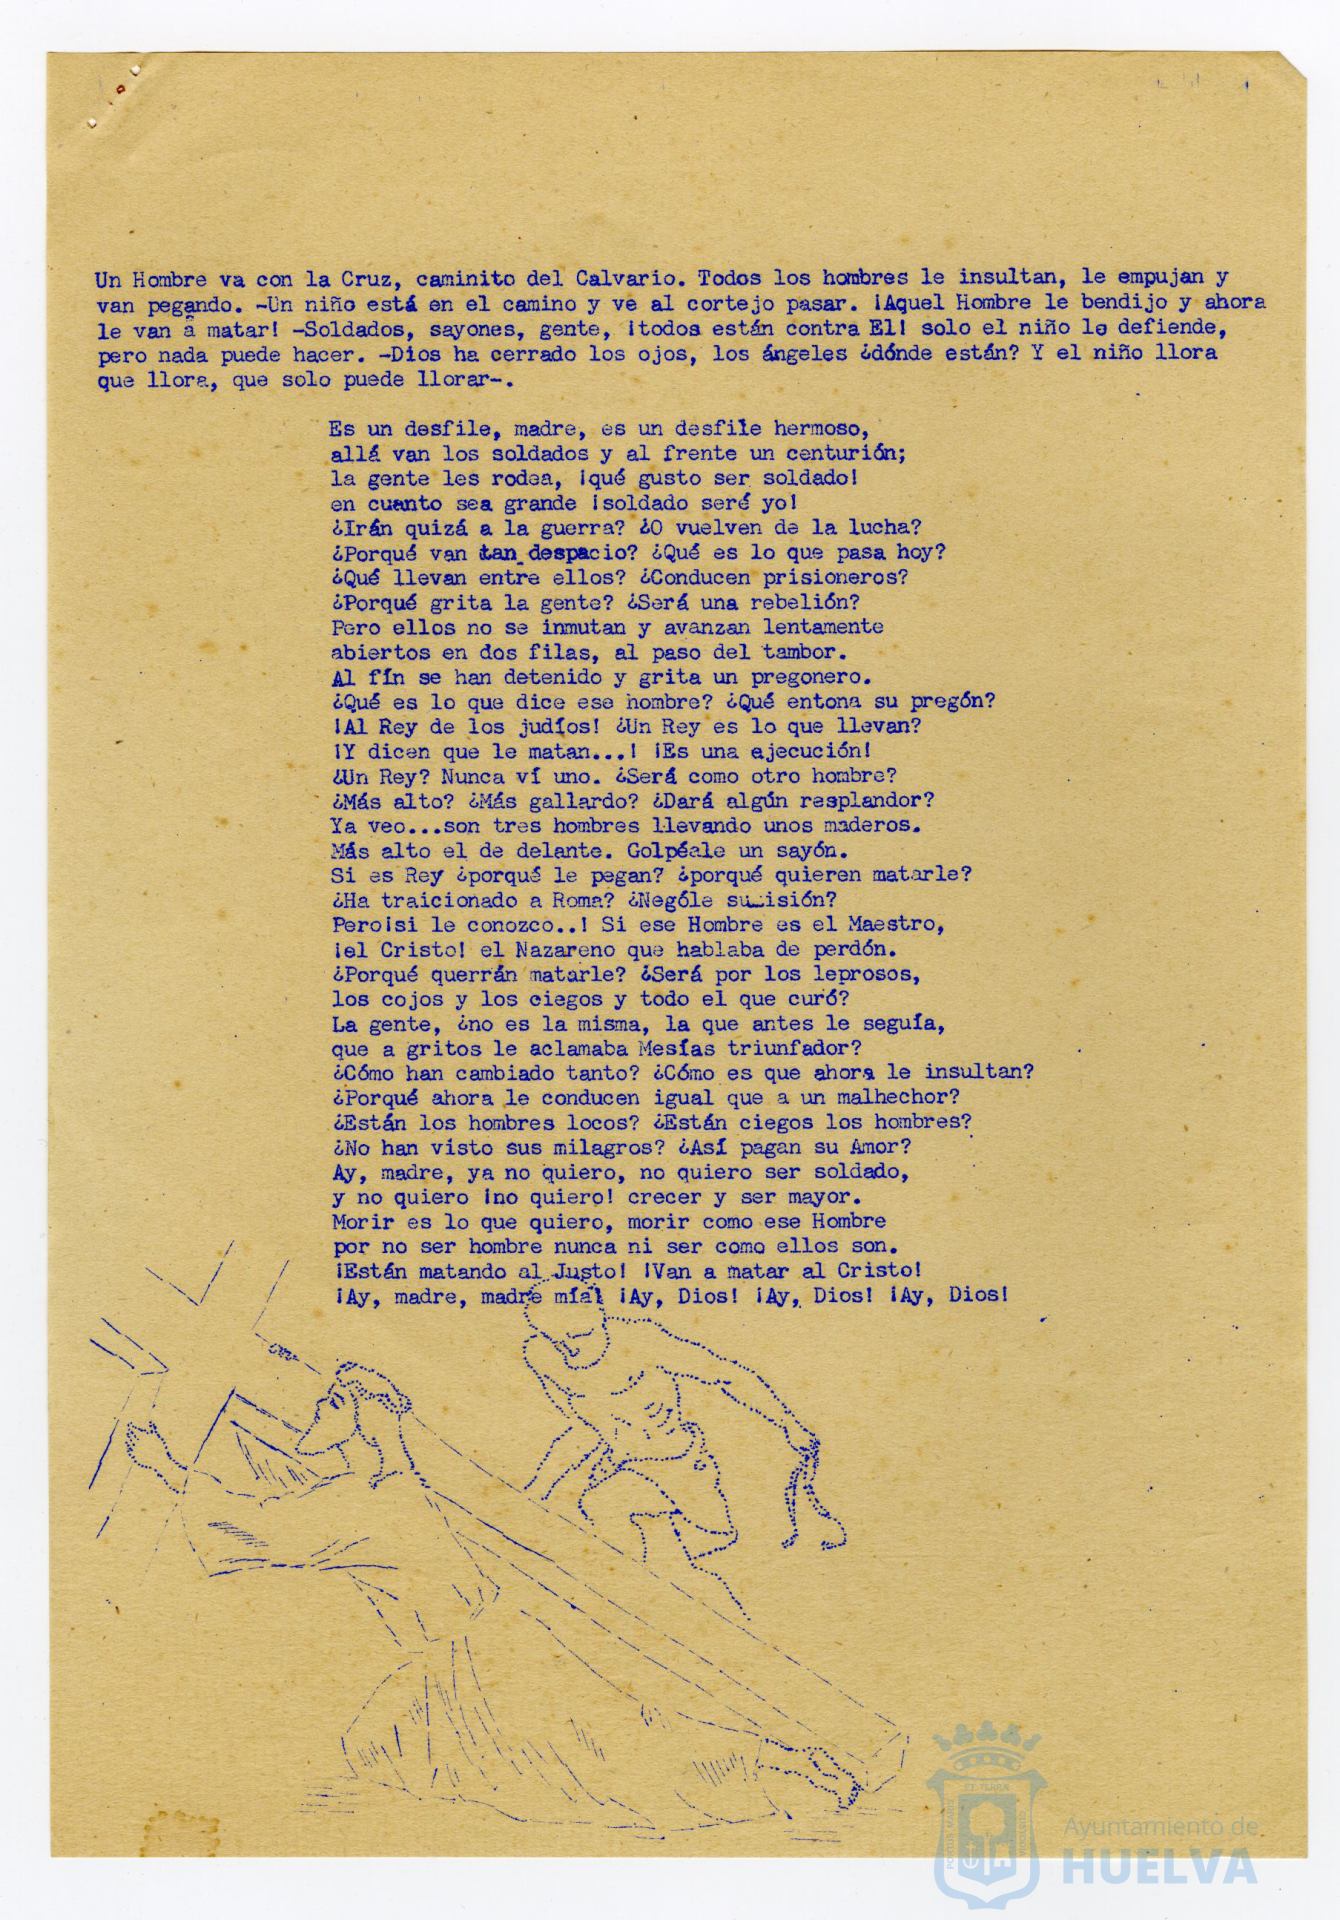 Un Hombre va con la Cruz, caminito del Calvario. Todos los hombres le insultan, le empujan y
van pegando. -Un niño está en el camino y ve al cortejo pasar. ¡Aquel Hombre le bendijo y ahora
le van â matar! -Soldados, sayones, gente, ¡todos están contra El! solo el niño le defiende,
pero nada puede hacer. -Dios ha cerrado los ojos, los ángeles ¿dónde están? Y el niño llora
que llora, que solo puede llorar-.
Es un desfile, madre, es un desfile hermoso,
allá van los soldados y al frente un centurión;
la gente les rodea, ¡qué gusto ser soldado!
en cuanto sea grande ¡soldado seré yo!
¿Irán quizá a la guerra? ¿O vuelven de la lucha?
¿Porqué van tan despacio? ¿Qué es lo que pasa hoy?
¿Qué llevan entre ellos? ¿Conducen prisioneros?
¿Porqué grita la gente? ¿Será una rebelión?
Pero ellos no se inmutan y avanzan lentamente
abiertos en dos filas, al paso del tambor.
Al fín se han detenido y grita un pregonero.
¿Qué es lo que dice ese hombre? ¿Qué entona su pregón?
¡Al Rey de los judíos! ¿Un Rey es lo que llevan?
¡Y dicen que le matan...! ¡Es una ejecución!
¿Un Rey? Nunca ví uno. ¿Será como otro hombre?
¿Más alto? ¿Más gallardo? ¿Dará algún resplandor?
Ya veo...son tres hombres llevando unos maderos.
Más alto el de delante. Golpéale un sayón.
Si es Rey ¿porqué le pegan? ¿porqué quieren matarle?
¿Ha traicionado a Roma? ¿Nególe sumisión?
Pero¡si le conozco..! Si ese Hombre es el Maestro,
¡el Cristo! el Nazareno que hablaba de perdón.
¿Porqué querrán matarle? ¿Será por los leprosos,
los cojos y los ciegos y todo el que curó?
La gente, ¿no es la misma, la que antes le seguía,
que a gritos le aclamaba Mesías triunfador?
¿Cómo han cambiado tanto? ¿Cómo es que ahora le insultan?
¿Porqué ahora le conducen igual que a un malhechor?
¿Están los hombres locos? ¿Están ciegos los hombres?
¿No han visto sus milagros? ¿Así pagan su Amor?
Ay, madre, ya no quiero, no quiero ser soldado,
y no quiero ¡no quiero! crecer y ser mayor.
Morir es lo que quiero, morir como ese Hombre
por no ser hombre nunca ni ser como ellos son.
¡Están matando al Justo! ¡Van a matar al Cristo!
¡Ay, madre, madre mía! ¡Ay, Dios! ¡Ay, Dios! ¡Ay, Dios!
Ayuntamiento de
HUELVA